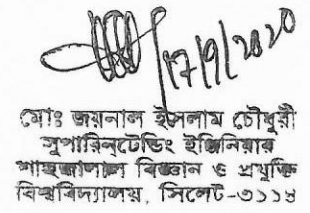 17/9/2020
মোঃ জয়নাল ইসলাম চৌধুরী
সুপারিন্‌টেন্ডিং ইঞ্জিনিয়ার
শাহজালাল বিজ্ঞান ও প্রযুক্তি
বিশ্ববিদ্যালয়, সিলেট-৩১১৪